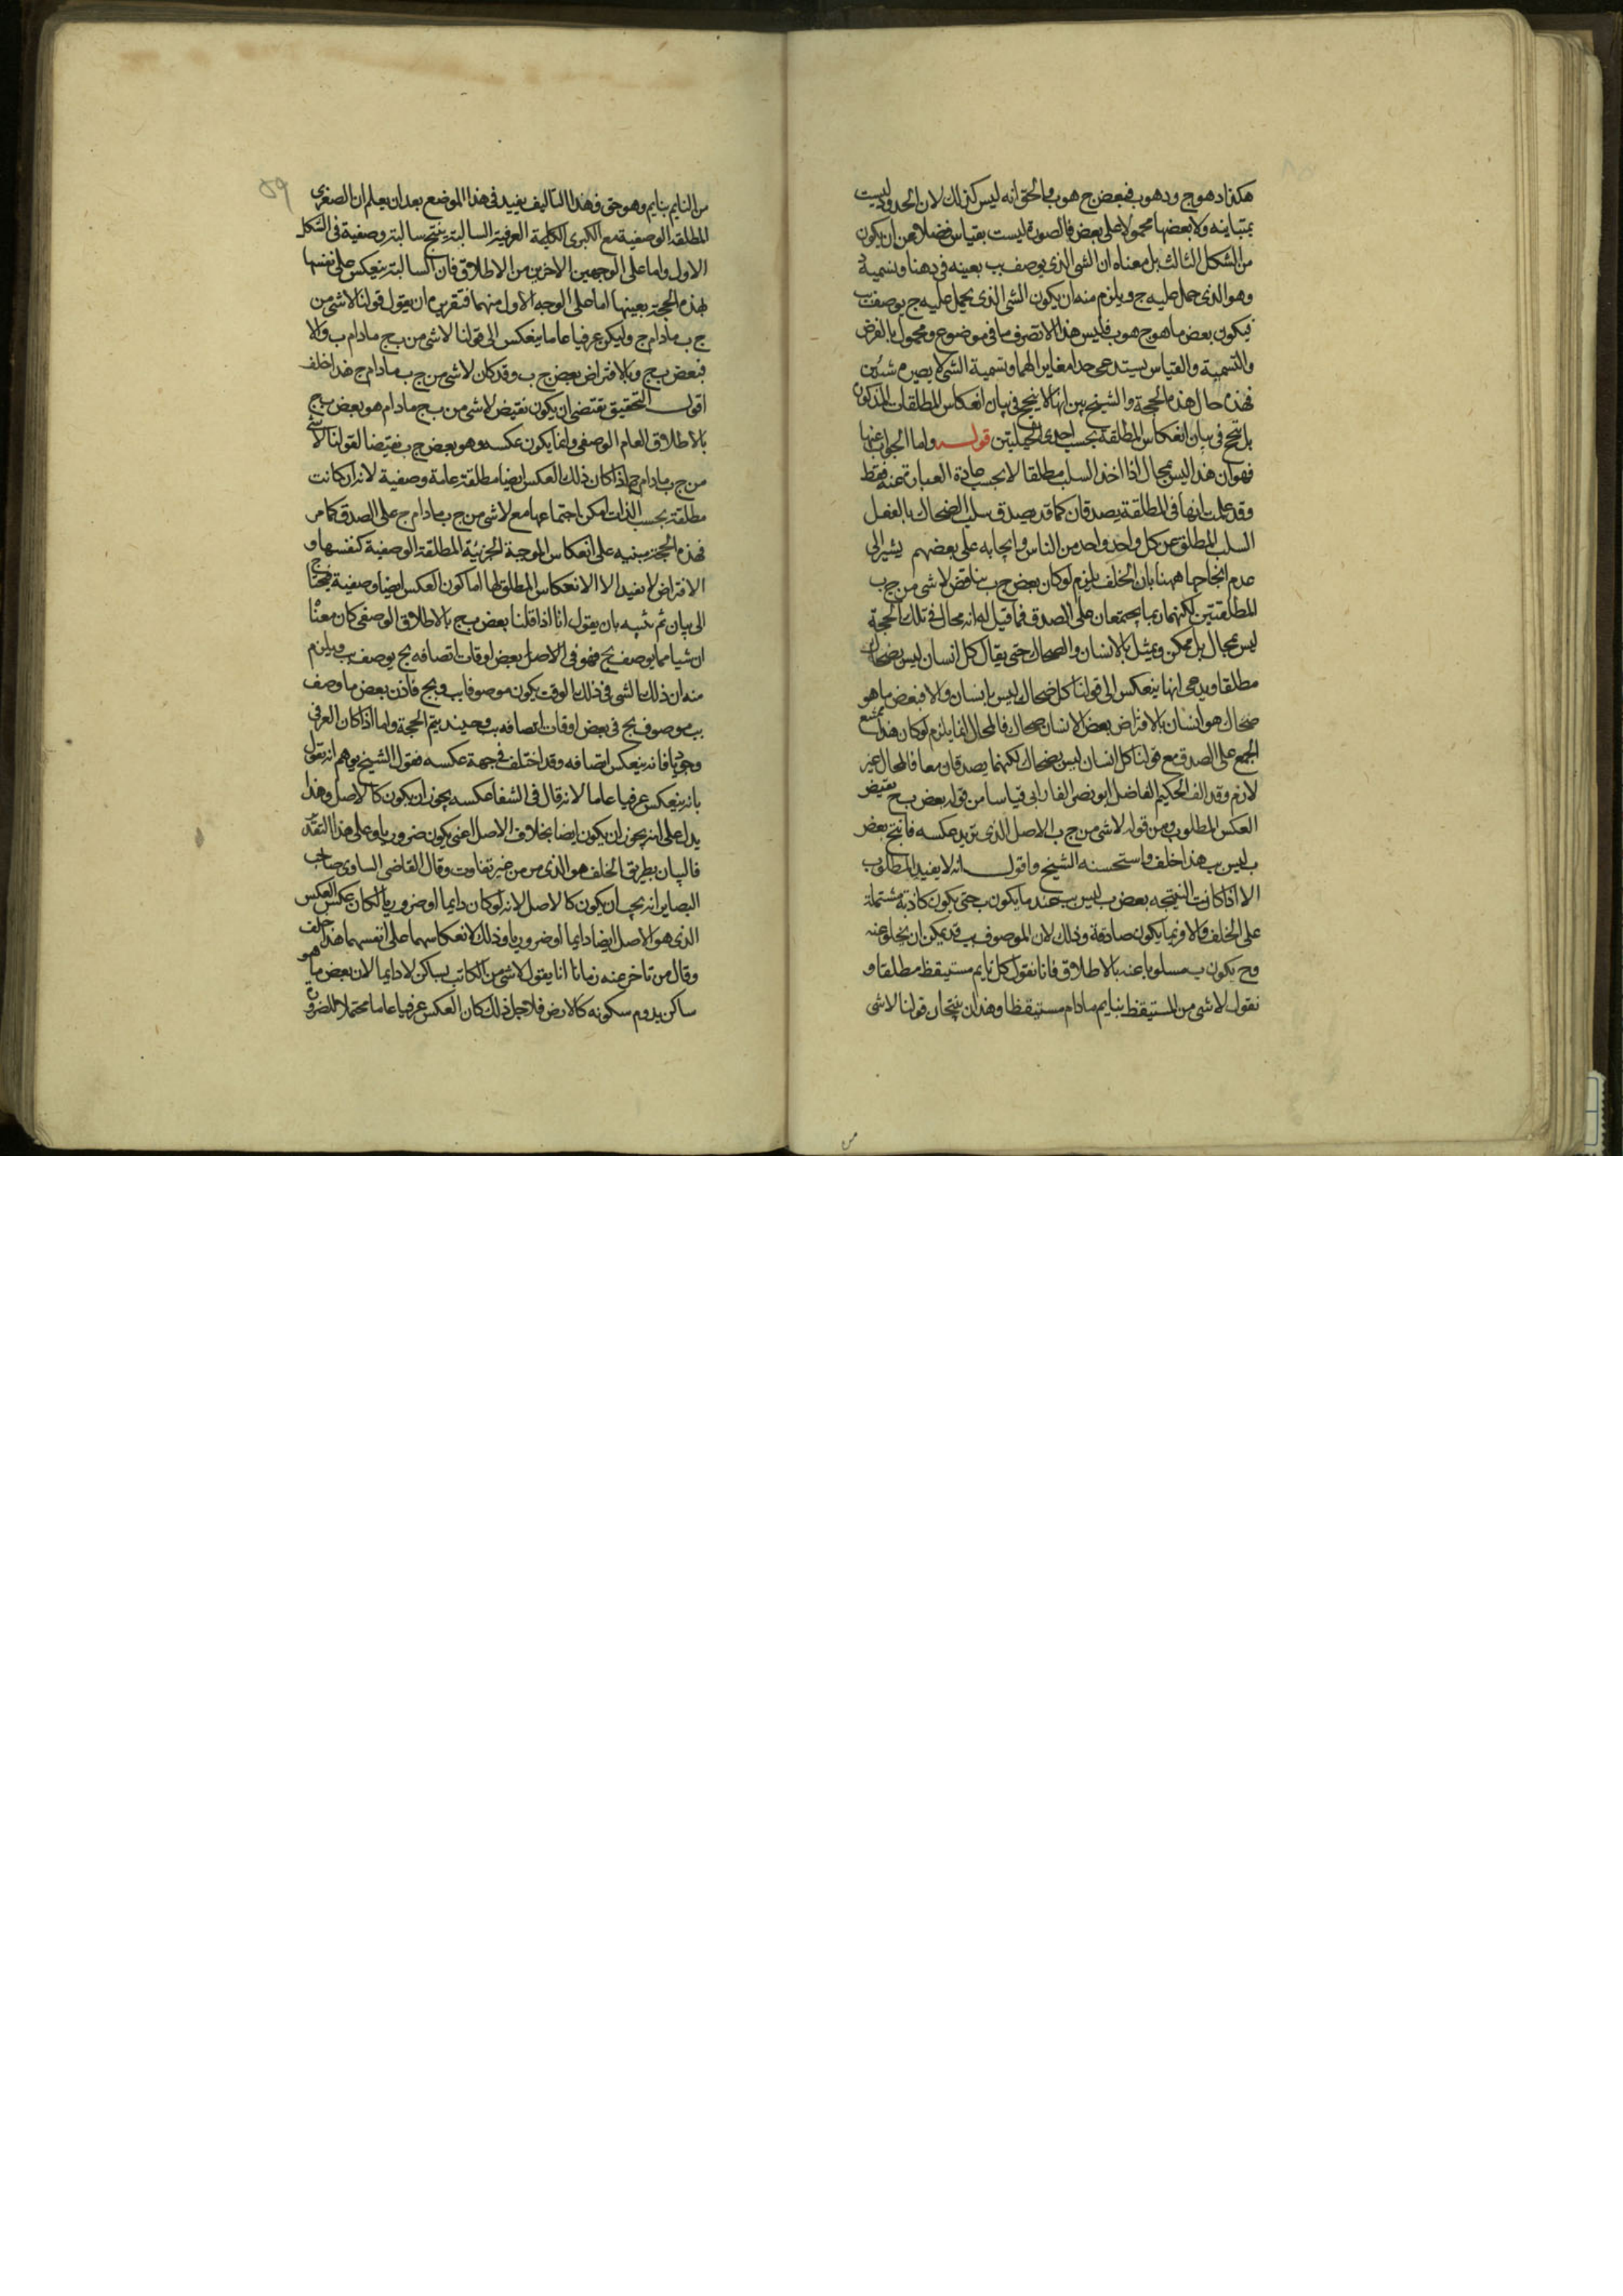 هكذا د هو ج و د هو ب فبعض ج هو ب والحق انه ليس كذلك لان الحدود ليست
بمتباينه ولا بعضها محمولا على بعض فالصورة ليست بقياس فضلا عن ان يكون
من الشكل الثالث بل معناه ان الشى الذى يوصف بب بعينه فى ذهننا ونسميه د
وهو الذى حمل عليه ج ويلزم منه ان يكون الشى الذى يحمل عليه ج يوصف بب
فيكون بعض ما هو ج هو ب فليس هذا الا تصرف ما فى موضوع ومحمول بالفرض
والتسمية والقياس يستدعى حدا مغايرا لهما وتسمية الشى لا يصيره شيئين
فهذه حال هذه الحجة والشيخ بين انها لا ينجح فى بيان انعكاس المطلقات المذكون
بل تنجح فى بيان انعكاس المطلقة بحسب احدى الحيلتين قوله واما الجواب عنها
فهو ان هذا ليس بمحال اذا اخذ السلب مطلقا لا بحسب عادة العبارة عنه فقط
وقد علمت انها فى المطلقة يصدقان كما قد يصدق سلب الضحاك بالفعل
السلب المطلق عن كل واحد واحد من الناس وايجابه على بعضهم يشير الى
عدم انجاحها ههنا بان الخلف يلزم لو كان بعض ج ب يناقض لا شى من ج ب
المطلقتين لكنهما ربما يجتمعان على الصدق فما قيل له انه محال فى تلك الحجة
ليس بمحال بل ممكن ويمثل بالانسان والضحاك حتى يقال كل انسان ليس بضحاك
مطلقا ويدعى انها ينعكس الى قولنا كل ضحاك ليس بانسان والا فبعض ما هو
ضحاك هو انسان بالافتراض بعض الانسان ضحاك فالمحال انما يلزم لو كان هذا يمتنع
الجمع على الصدق مع قولنا كل انسان ليس بضحاك لكنهما يصدقان معا فالمحال غير
لازم وقد الف الحكيم الفاضل ابو نصر الفارابى قياسا من قوله بعض ب ج نقيض
العكس المطلوب ومن قوله لا شى من ج ب الاصل الذى نريد عكسه فانتج بعض
ب ليس ب هذا خلف واستحسنه الشيخ واقول انه لا يفيد المطلوب
الا اذا كانت النتيجه بعض ب ليس ب عند ما يكون ب حتى يكون كاذبة مشتملة
على الخلف والا فربما يكون صادقة وذلك لان الموصوف بب قد يمكن ان يخلو عنه
وح يكون ب مسلوبا عنه بالاطلاق فانا نقول كل نايم مستيقظ مطلقا و
نقول لا شى من المستيقظ بنايم مادام مستيقظا وهذان ينتجان قولنا لا شى
من
٥٩
من النايم بنايم وهو حق وهذا التاليف يفيد فى هذا الموضع بعد ان يعلم ان الصغرى
المطلقة الوصفية مع الكبرى الكلية العرفية السالبة ينتج سالبة وصفية فى الشكل
الاول واما على الوجهين الاخرين من الاطلاق فان السالبة ينعكس على نفسها
بهذه الحجة بعينها اما على الوجه الاول منهما فتقريره ان يقول قولنا لا شى من
ج ب مادام ج وليكن عرفيا عاما ينعكس الى قولنا لا شى من ب ج مادام ب والا
فبعض ب ج وبالافتراض بعض ج ب وقد كان لا شى من ج ب مادام ج هذا خلف
اقول التحقيق يقتضى ان يكون نقيض لا شى من ب ج مادام هو بعض ب ج
بالاطلاق العام الوصفى وانما يكون عكسه وهو بعض ج ب نقيضا لقولنا لا شى
من ج ب مادام ج اذا كان ذلك العكس ايضا مطلقة عامة وصفية لانه ان كانت
مطلقة بحسب الذات امكن اجتماعها مع لا شى من ج ب مادام ج على الصدق كما مر
فهذه الحجة مبنيه على انعكاس الموجبة الجزئية المطلقة الوصفية كنفسها و
الافتراض لا يفيد الا الانعكاس المطلق لها اما كون العكس ايضا وصفية فيحتاج
الى بيان ثم نبينه بان يقول انا اذا قلنا بعض ب ج بالاطلاق الوصفى كان معناه
ان شيا مما يوصف بج فهو فى الاصل بعض اوقات اتصافه بج يوصف بب ويلزم
منه ان ذلك الشى فى ذلك الوقت يكون موصوفا بب وبج فاذن بعض ما وصف
بب موصوف بج فى بعض اوقات اتصافه بب وحينئذ يتم الحجة واما اذا كان العرفى
وجوديا فانه ينعكس ايضا فه وقد اختلف فى جهة عكسه فقول الشيخ يوهم انه يقول
بانه ينعكس عرفيا عاما لانه قال فى الشفا عكسه يجوز ان يكون كالاصل وهذا
يدل على انه يجوز ان يكون ايضا بخلاف الاصل اعنى يكون ضروريا وعلى هذا التقدير
فالبيان بطريق الخلف هو الذى مر من غير تفاوت وقال القاضى الساوى صاحب
البصاير انه يجب ان يكون كالاصل لانه لو كان دايما او ضروريا لكان عكس العكس
الذى هو الاصل ايضا دايما او ضروريا وذلك لانعكاسهما على انفسهما هذا خلف
وقال من تاخر عنه زمانا انا يقول لا شى من الكاتب بساكن لا دايما لان بعض ما هو
ساكن يدوم سكونه كالارض فلاجل ذلك كان العكس عرفيا عاما محتملا للضرورة